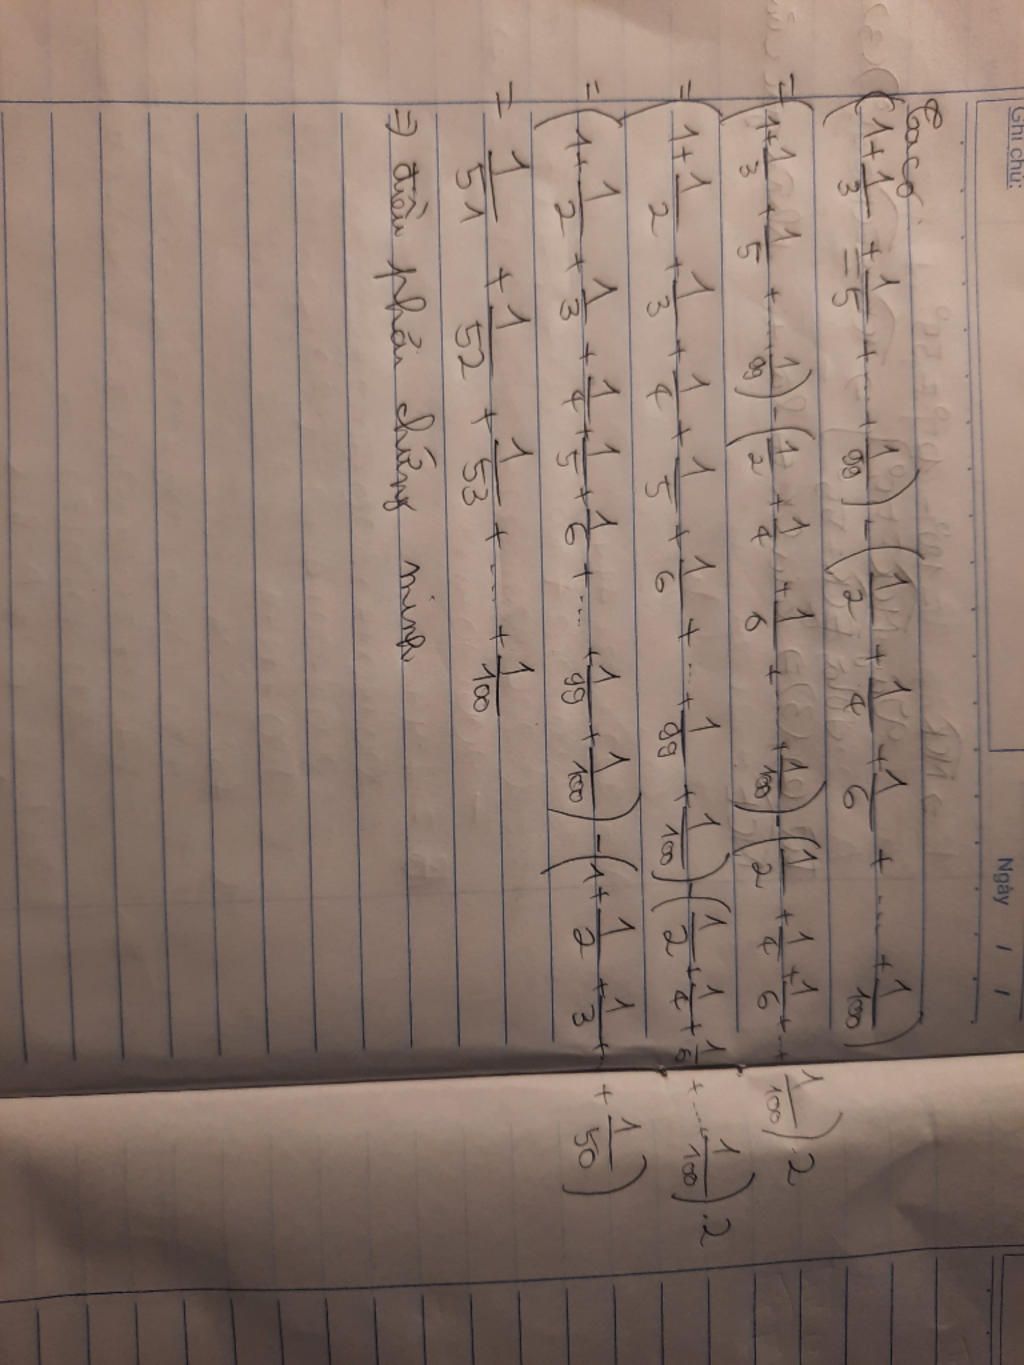 Ghi chú:
Ngày / /
Ta có
(1 + 1/3 + 1/5 + ... + 1/99) - (1/2 + 1/4 + 1/6 + .... + 1/100)
= (1 + 1/3 + 1/5 + ... 1/99) - (1/2 + 1/4 + 1/6 + + 1/100) - (1/2 + 1/4 + 1/6 + ... 1/100).2
= (1 + 1/2 + 1/3 + 1/4 + 1/5 + 1/6 + ... + 1/99 + 1/100) - (1/2 + 1/4 + 1/6 + .... 1/100).2
= (1 + 1/2 + 1/3 + 1/4 + 1/5 + 1/6 + .... + 1/99 + 1/100) - (1 + 1/2 + 1/3 + + 1/50)
= 1/51 + 1/52 + 1/53 + .... + 1/100
=> điều phải chứng minh